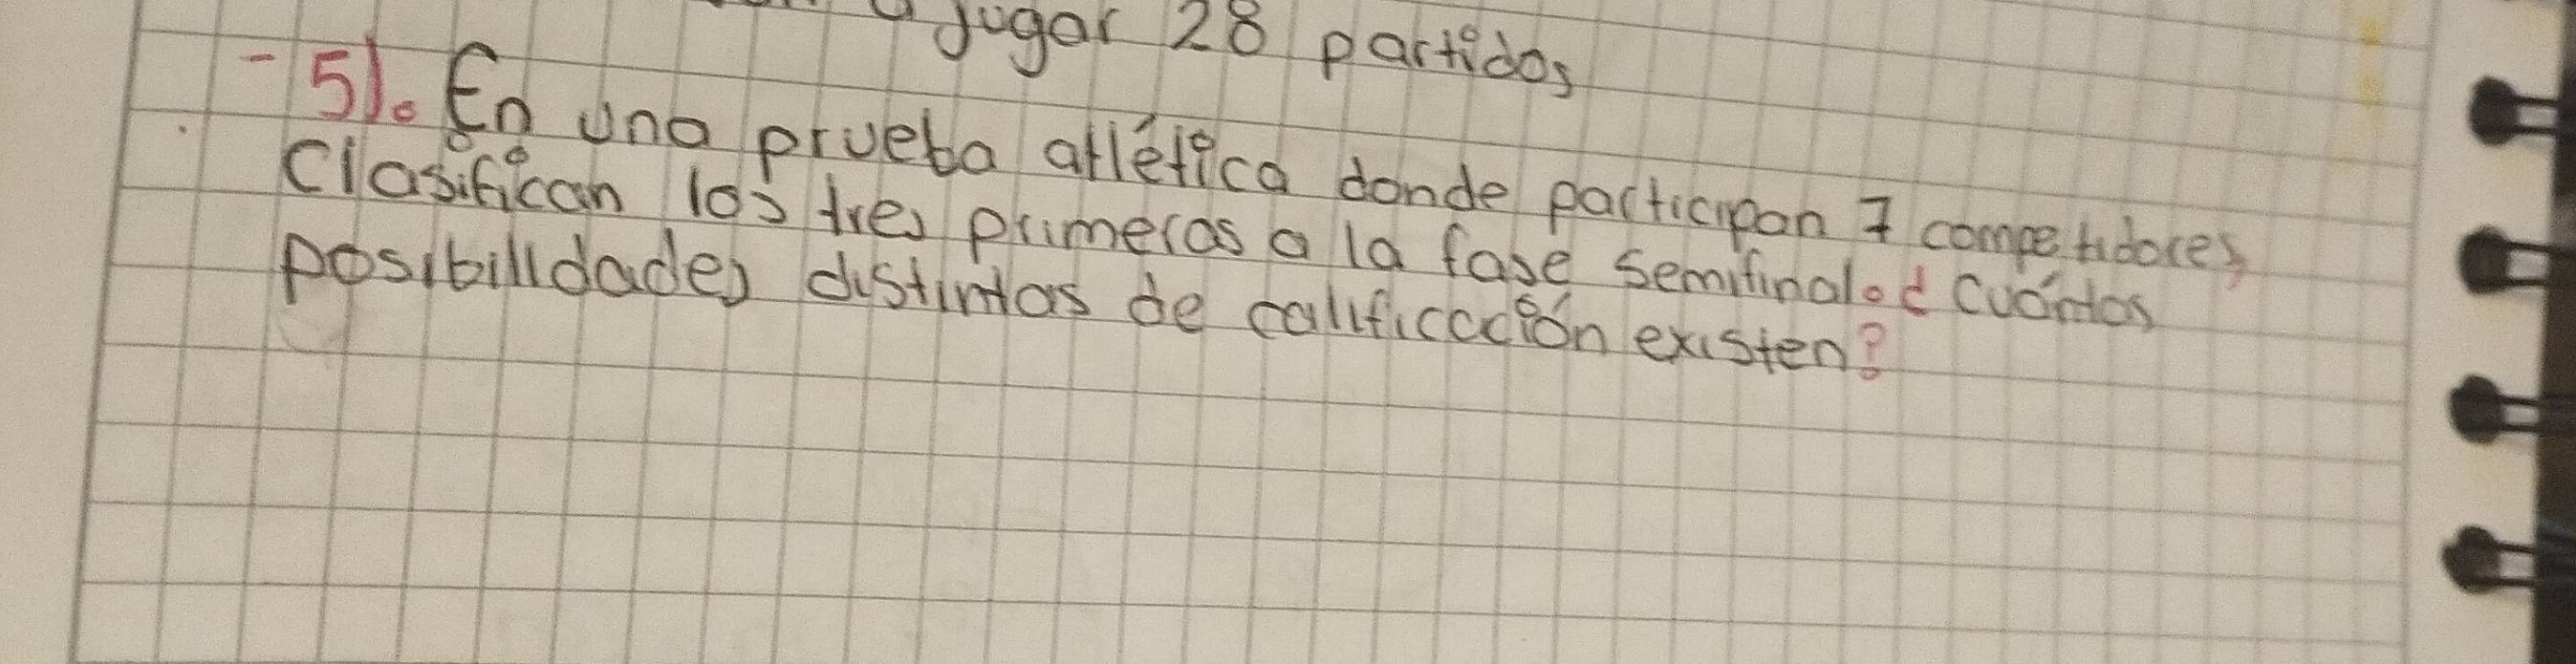 a jugar 28 partidos
-5). En una prueba atlética donde participan 7 competidores,
Clasifican los tres primeras a la fase semifinal. ¿ Cuántas
posibilldades distintas de calificación existen?